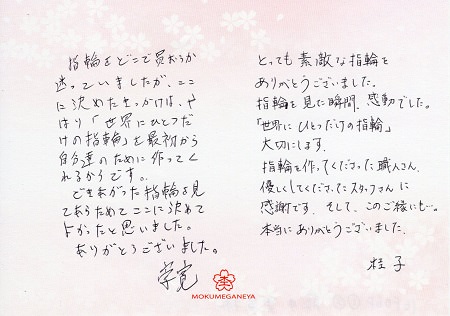 指輪をどこで買おうか
迷っていましたが、ここ
に決めたきっかけは、や
はり「世界にひとつだ
けの指輪」を最初から
自分達のために作ってく
れるからです。
できあがった指輪を見
てあらためてここに決めて
よかったと思いました。
ありがとうございました。
学寛
とっても素敵な指輪を
ありがとうございました。
指輪を見た瞬間、感動でした。
「世界にひとつだけの指輪」
大切にします。
指輪を作ってくださった職人さん、
優しくしてくださったスタッフさんに
感謝です。そして、このご縁にも…。
本当にありがとうございました。
桂子
MOKUMEGANEYA